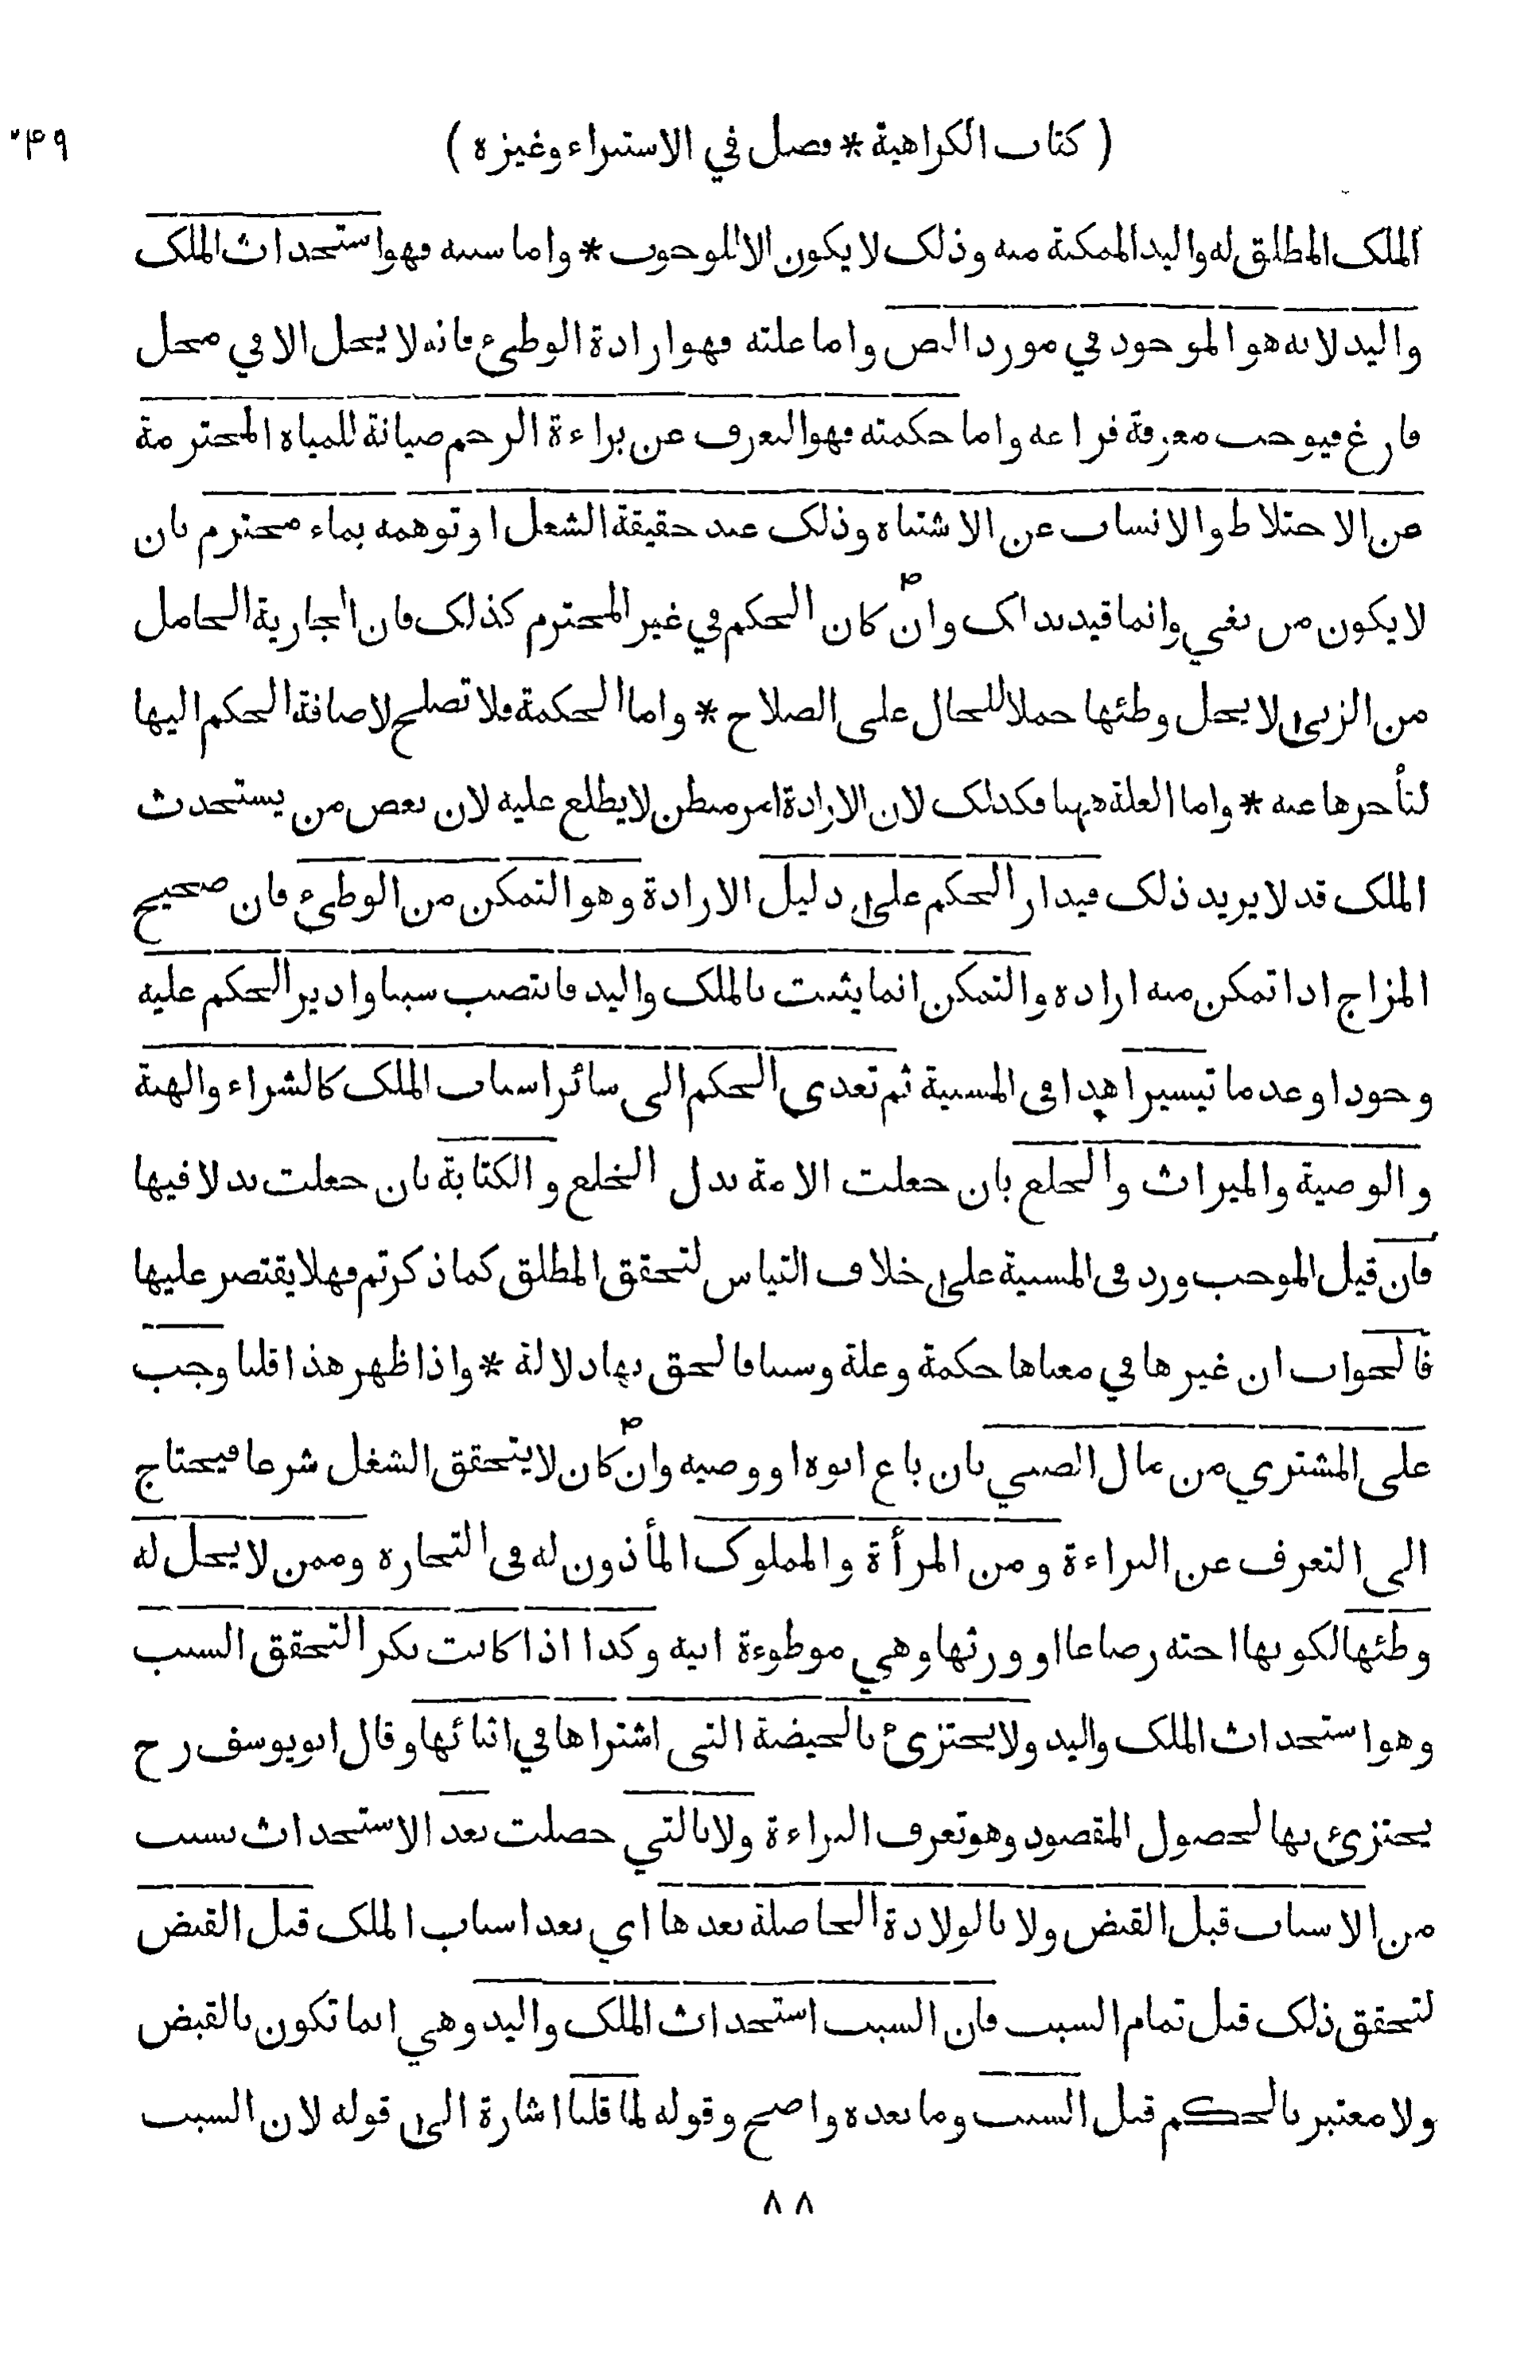 ( كتاب الكراهية * فصل في الاستبراء وغيره )
الملك المطلق له واليد الممكنة منه وذلك لا يكون الا للوجوب * واما سببه فهو استحداث الملك
واليد لانه هو الموجود في مورد النص واما علته فهو ارادة الوطئ فانه لا يحل الا في محل
فارغ فيوجب معرفة فراغه واما حكمته فهو التعرف عن براءة الرحم صيانة للمياه المحترمة
عن الاختلاط والانساب عن الاشتباه وذلك عند حقيقة الشغل او توهمه بماء محترم بان
لا يكون من بغي وانما قيد بذلك وان كان الحكم في غير المحترم كذلك فان الجارية الحامل
من الزنى لا يحل وطئها حملا للحال على الصلاح * واما الحكمة فلا تصلح لاضافة الحكم اليها
لتأخرها عنه * واما العلة ههنا فكذلك لان الارادة امر مبطن لا يطلع عليه لان بعض من يستحدث
الملك قد لا يريد ذلك فيدار الحكم على دليل الارادة وهو التمكن من الوطئ فان صحيح
المزاج اذا تمكن منه اراده والتمكن انما يثبت بالملك واليد فانتصب سببا وادير الحكم عليه
وجودا وعدما تيسيرا هذا في المسبية ثم تعدى الحكم الى سائر اسباب الملك كالشراء والهبة
والوصية والميراث والخلع بان جعلت الامة بدل الخلع والكتابة بان جعلت بدلا فيها
فان قيل الموجب ورد في المسبية على خلاف القياس لتحقق المطلق كما ذكرتم فهلا يقتصر عليها
فالجواب ان غيرها في معناها حكمة وعلة وسببا فالحق بها دلالة * واذا ظهر هذا قلنا وجب
على المشتري من مال الصبي بان باع ابوه او وصيه وان كان لا يتحقق الشغل شرعا فيحتاج
الى التعرف عن البراءة ومن المرأة والمملوك المأذون له في التجاره وممن لا يحل له
وطئها لكونها اخته رضاعا او ورثها وهي موطوءة ابيه وكذا اذا كانت بكر التحقق السبب
وهو استحداث الملك واليد ولا يجتزئ بالحيضة التي اشتراها في اثنائها وقال ابو يوسف رح
يجتزئ بها لحصول المقصود وهو تعرف البراءة ولا بالتي حصلت بعد الاستحداث بسبب
من الاسباب قبل القبض ولا بالولادة الحاصلة بعدها اي بعد اسباب الملك قبل القبض
لتحقق ذلك قبل تمام السبب فان السبب استحداث الملك واليد وهي انما تكون بالقبض
ولا معتبر بالحكم قبل السبب وما بعده واضح وقوله لما قلنا اشارة الى قوله لان السبب
٨٨